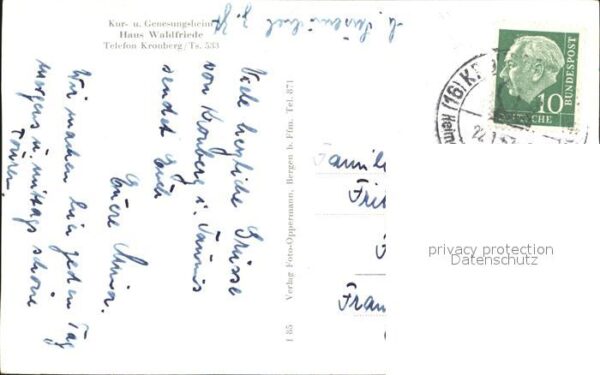 Kur- u. Genesungsheim
Haus Waldfriede
Telefon Kronberg/Ts. 533
Viele herzliche Grüsse
von Kronberg i. Taunus
sendet Euch
Eure
Wir machen hier jeden Tag
morgens u. mittags schöne
Touren.
I 85 Verlag Foto-Oppermann, Bergen b. Ffm. Tel. 871
10
DEUTSCHE
BUNDESPOST
(16) K
Heim
22.7.
Famili
Fri
F
Fran
privacy protection
Datenschutz